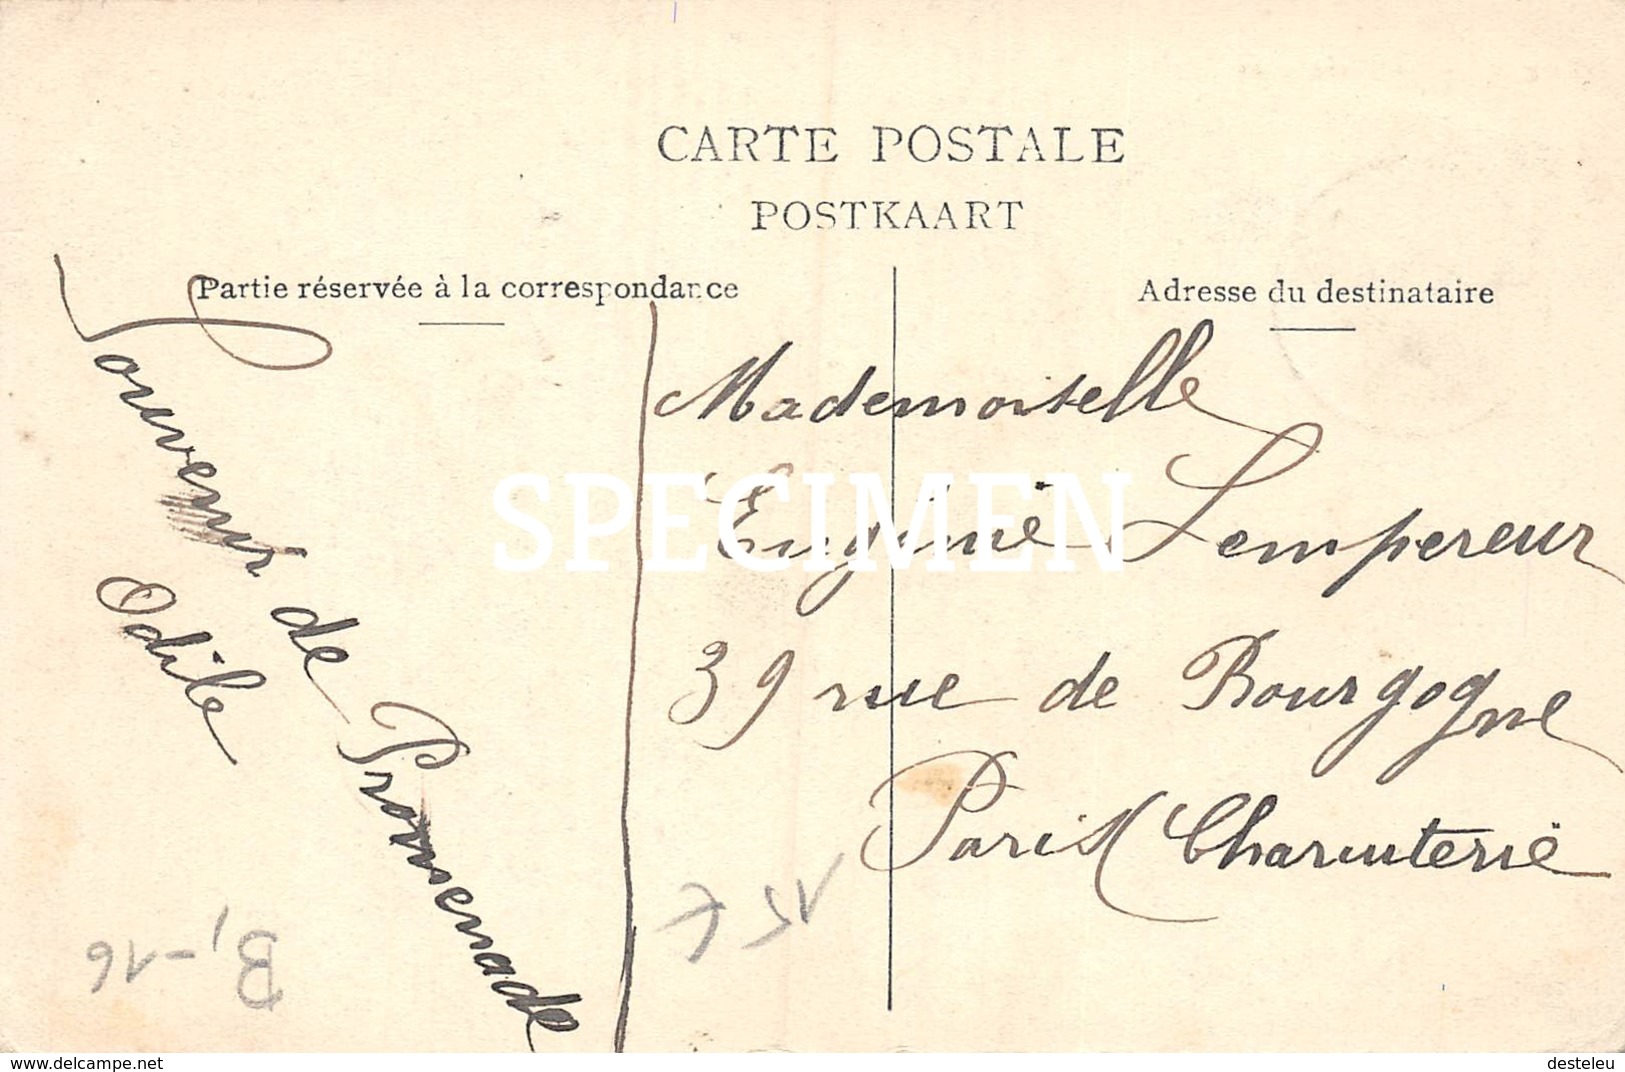 CARTE POSTALE
POSTKAART
Partie réservée à la correspondance
Adresse du destinataire
Souvenir de Promenade
Odile
Mademoiselle
Eugénie Lempereur
39 rue de Bourgogne
Paris (Charcuterie
SPECIMEN
15 €
B,-16
www.delcampe.net
desteleu